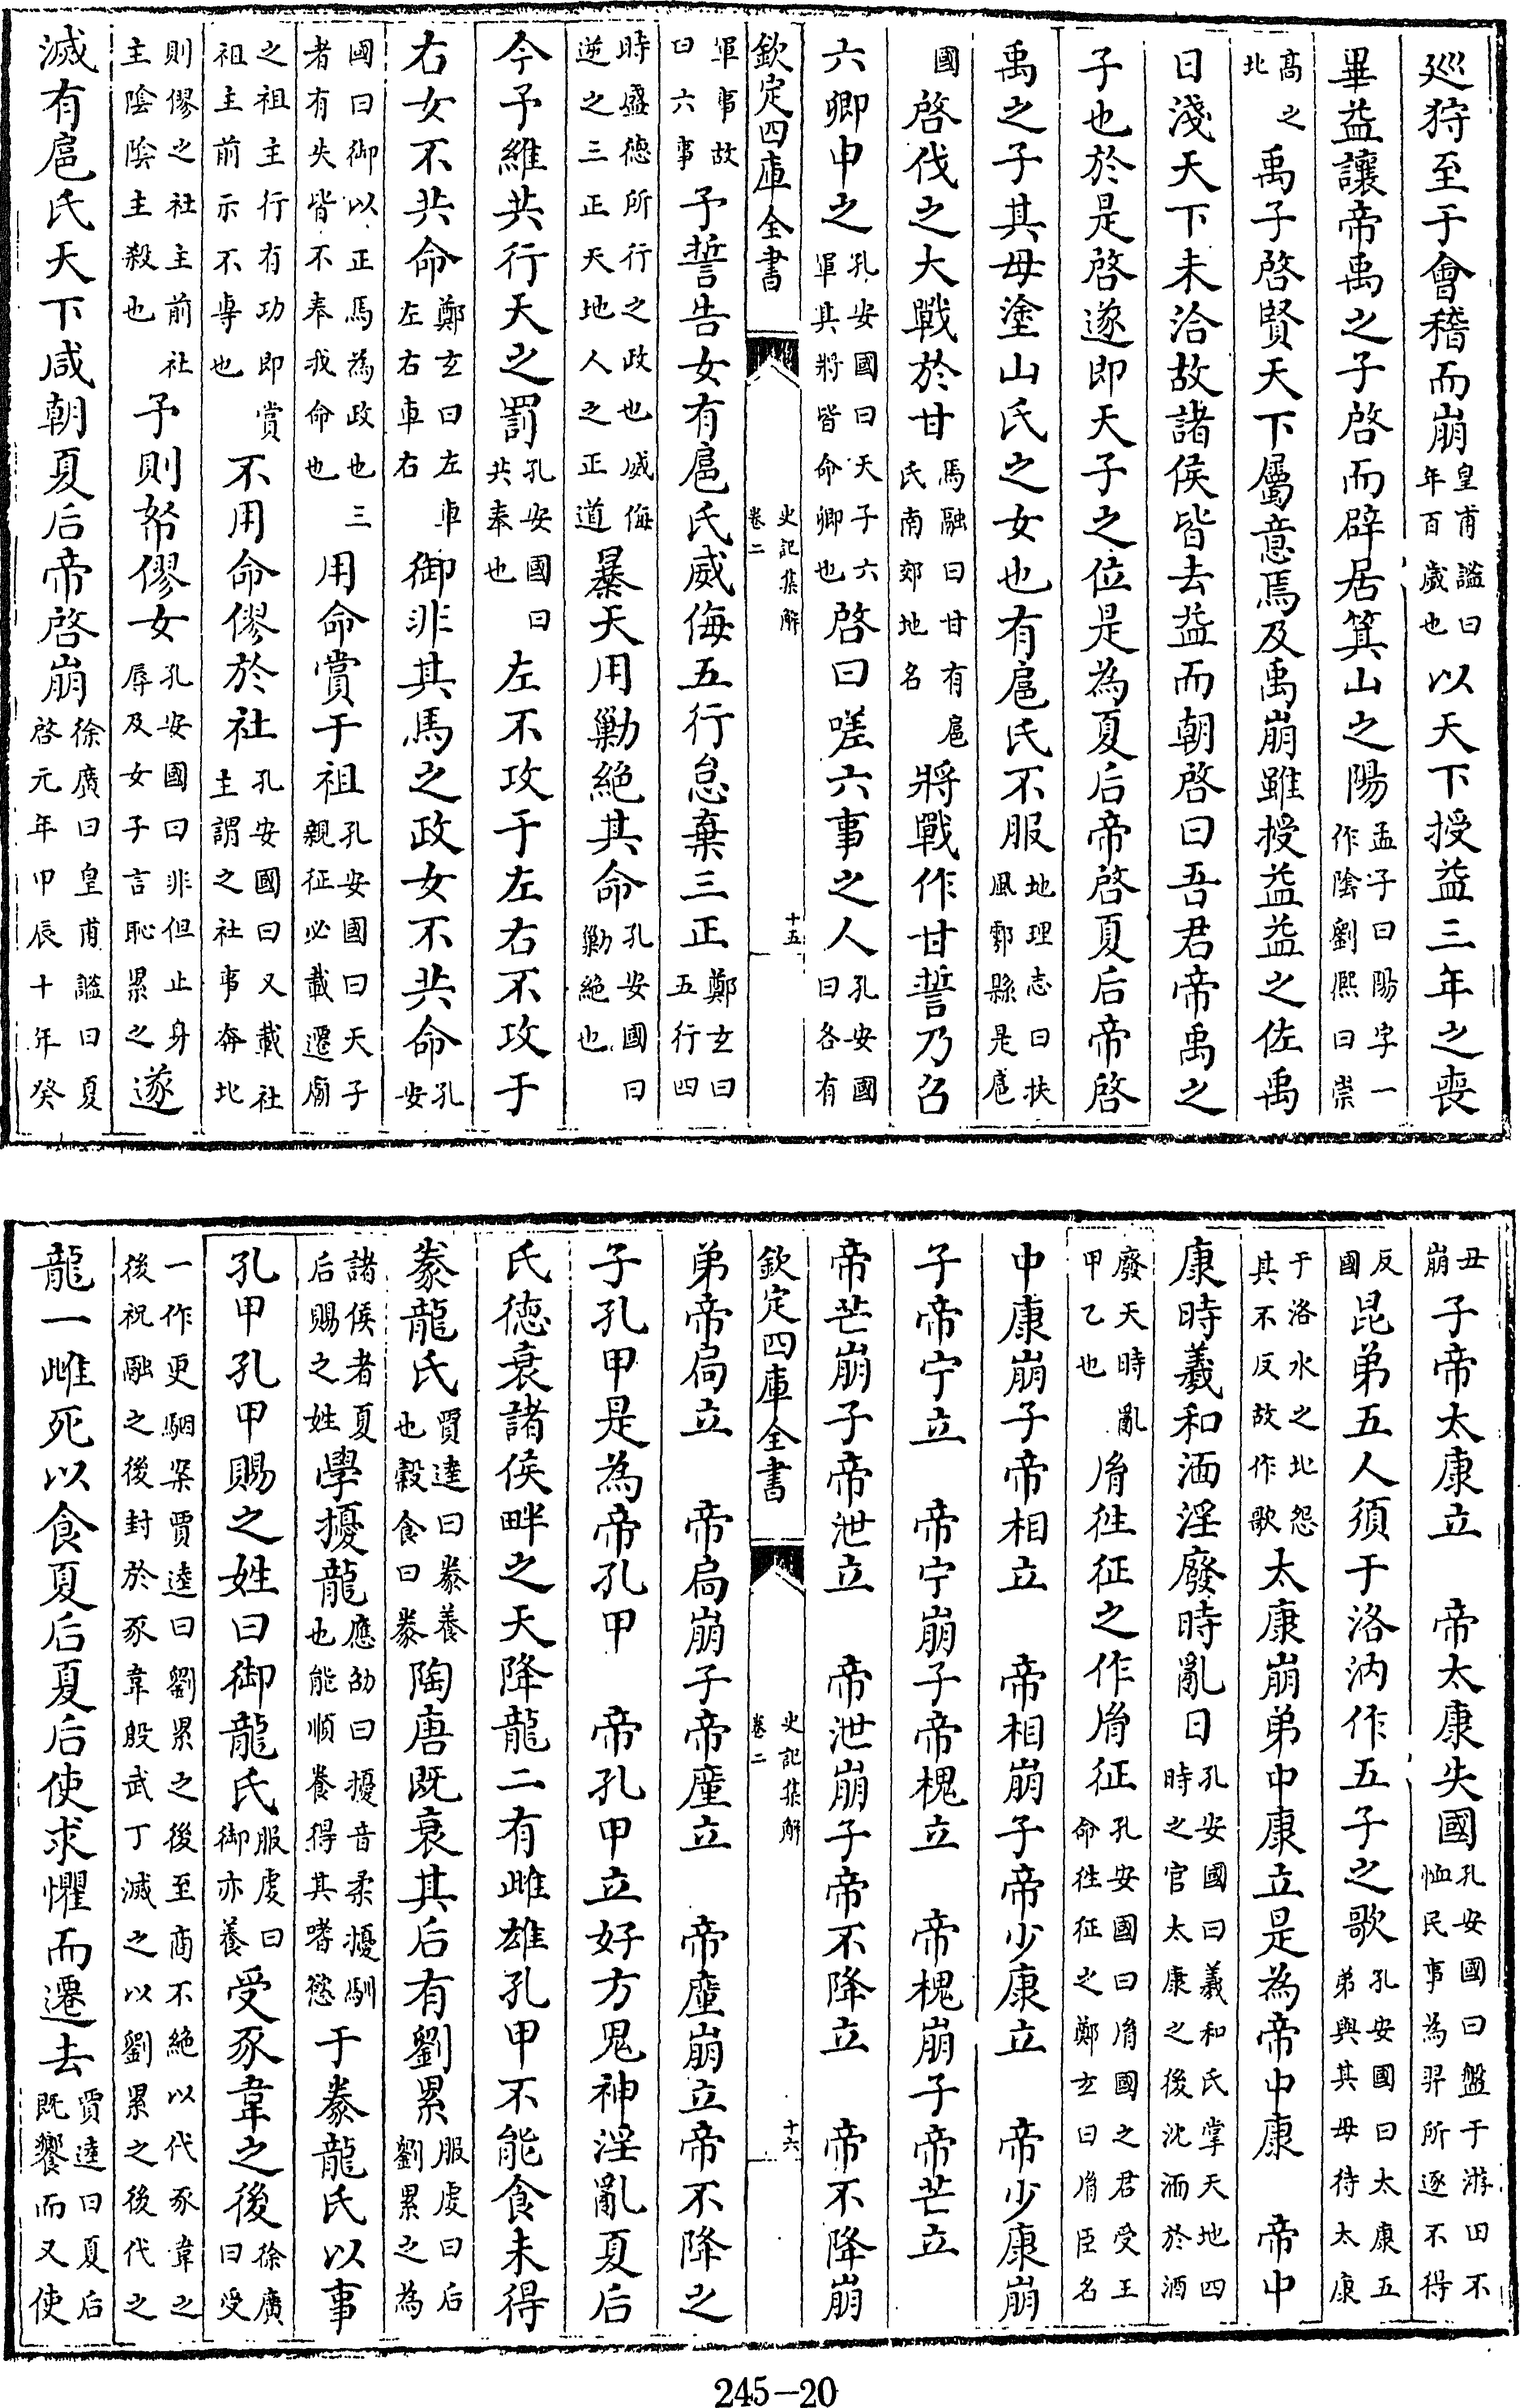 巡狩至于會稽而崩皇甫謐曰年百歲也以天下授益三年之喪
畢益讓帝禹之子啓而辟居箕山之陽孟子曰陽字一作陰劉熈曰崇
髙之北禹子啓賢天下屬意焉及禹崩雖授益益之佐禹
日淺天下未洽故諸侯皆去益而朝啓曰吾君帝禹之
子也於是啓遂即天子之位是為夏后帝啓夏后帝啓
禹之子其母塗山氏之女也有扈氏不服地理志曰扶風鄠縣是扈
國啓伐之大戰於甘馬融曰甘有扈氏南郊地名將戰作甘誓乃召
六卿申之孔安國曰天子六軍其將皆命卿也啓曰嗟六事之人孔安國曰各有
欽定四庫全書 史記集解 卷二 十五
軍事故曰六事予誓告女有扈氏威侮五行怠棄三正鄭玄曰五行四
時盛德所行之政也威侮逆之三正天地人之正道暴天用勦絕其命孔安國曰勦絕也
今予維共行天之罰孔安國曰共奉也左不攻于左右不攻于
右女不共命鄭玄曰左車左右車右御非其馬之政女不共命孔安
國曰御以正馬為政也三者有失皆不奉我命也用命賞于祖孔安國曰天子親征必載遷廟
之祖主行有功即賞祖主前示不専也不用命僇於社孔安國曰又載社主謂之社事奔北
則僇之社主前社主陰陰主殺也予則帑僇女孔安國曰非但止身辱及女子言恥累之遂
滅有扈氏天下咸朝夏后帝啓崩徐廣曰皇甫謐曰夏啓元年甲辰十年癸
丑崩子帝太康立 帝太康失國孔安國曰盤于游田不恤民事為羿所逐不得
反國昆弟五人須于洛汭作五子之歌孔安國曰太康五弟與其母待太康
于洛水之北怨其不反故作歌太康崩弟中康立是為帝中康 帝中
康時羲和湎淫廢時亂日孔安國曰羲和氏掌天地四時之官太康之後沈湎於酒
廢天時亂甲乙也胤徃征之作胤征孔安國曰胤國之君受王命徃征之鄭玄曰胤臣名
中康崩子帝相立 帝相崩子帝少康立 帝少康崩
子帝宁立 帝宁崩子帝槐立 帝槐崩子帝芒立
帝芒崩子帝泄立 帝泄崩子帝不降立 帝不降崩
欽定四庫全書 史記集解 卷二 十六
弟帝扃立 帝扃崩子帝廑立 帝廑崩立帝不降之
子孔甲是為帝孔甲 帝孔甲立好方鬼神淫亂夏后
氏德衰諸侯畔之天降龍二有雌雄孔甲不能食未得
豢龍氏賈逵曰豢養也穀食曰豢陶唐既衰其后有劉累服虔曰后劉累之為
諸侯者夏后賜之姓學擾龍應劭曰擾音柔擾馴也能順養得其嗜慾于豢龍氏以事
孔甲孔甲賜之姓曰御龍氏服虔曰御亦養受豕韋之後徐廣曰受
一作更駰案賈逵曰劉累之後至商不絕以代豕韋之後祝融之後封於豕韋殷武丁滅之以劉累之後代之
龍一雌死以食夏后夏后使求懼而遷去賈逵曰夏后既饗而又使
245-20